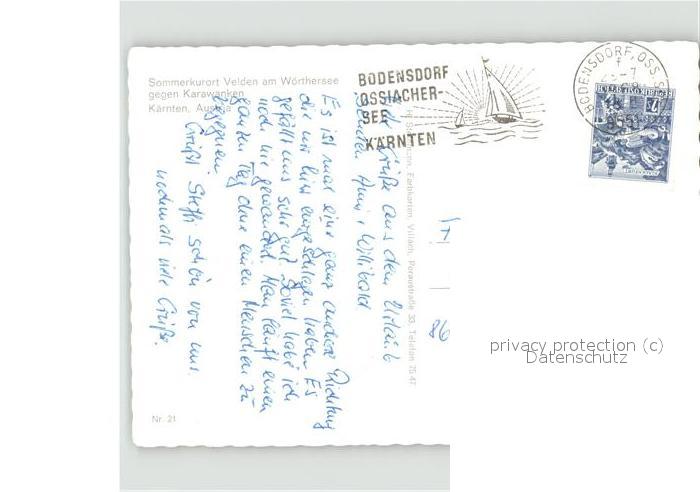 Sommerkurort Velden am Wörthersee
gegen Karawanken
Kärnten, Austria
BODENSDORF
OSSIACHER-
SEE
KÄRNTEN
BODENSDORF, OSS. S
Grüße aus dem Urlaub
senden Anni + Willibald
Es ist mal eine ganz andere Richtung
die wir hier eingeschlagen haben. Es
gefällt uns sehr gut. Soviel habe ich
noch nie gewandert. Man läuft einen
ganzen Tag ohne einen Menschen zu
begegnen.
Grüßt Steffi schön von uns.
nochmals viele Grüße.
Farbkarten, Villach, Peraustraße 33, Telefon 75 47
86
Nr. 21
privacy protection (c)
Datenschutz